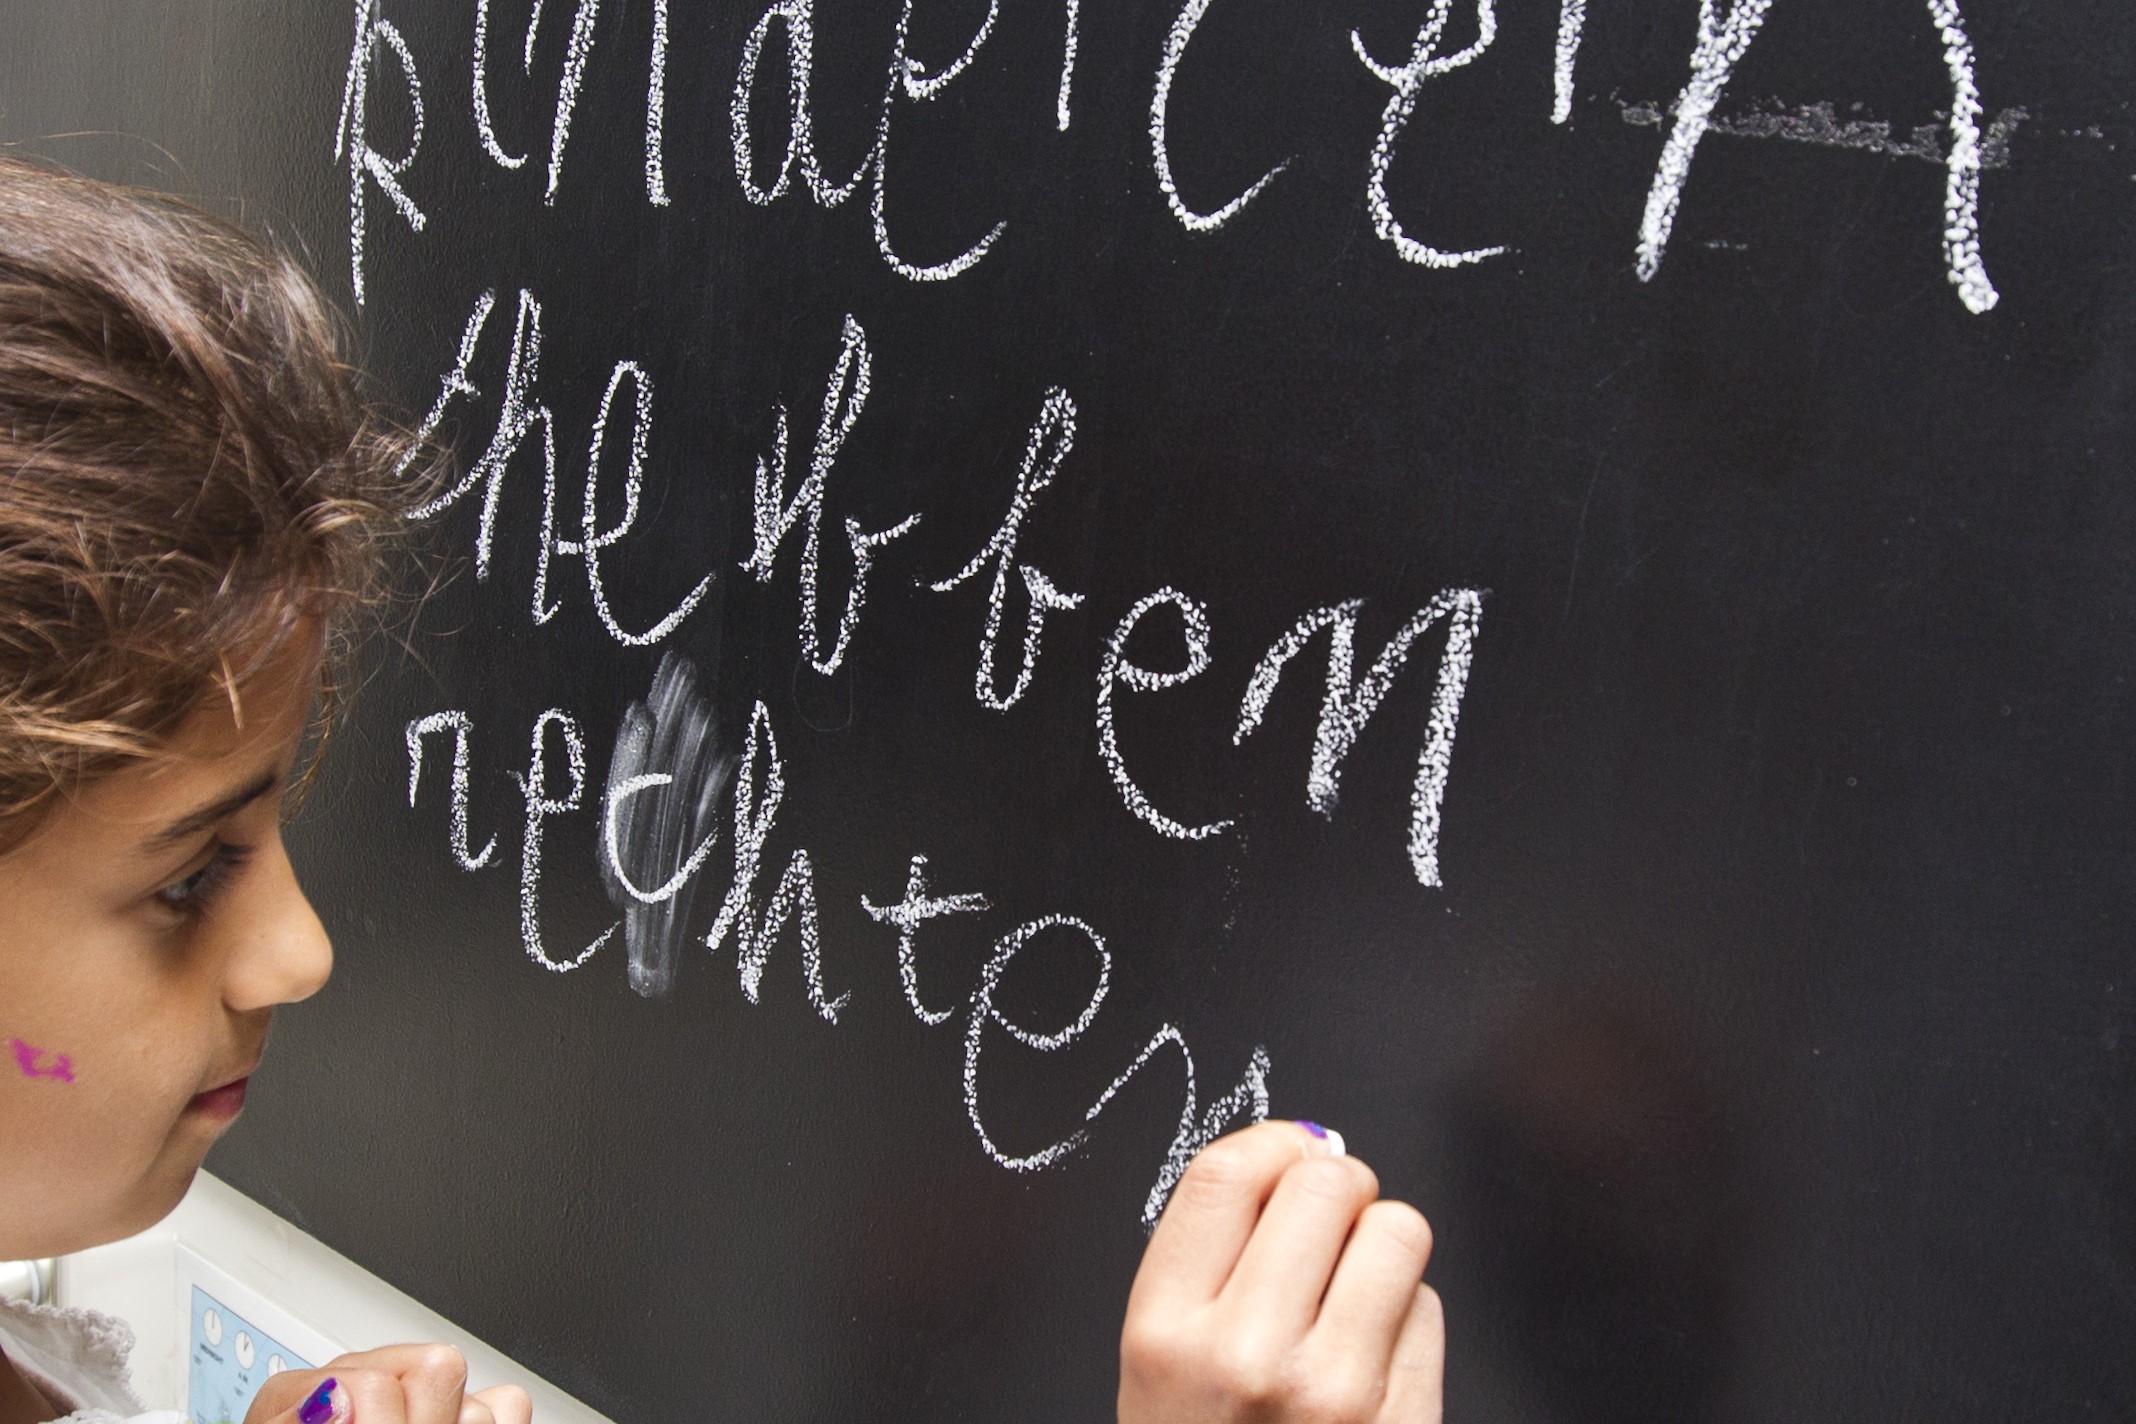 kinderen
hebben
rechten